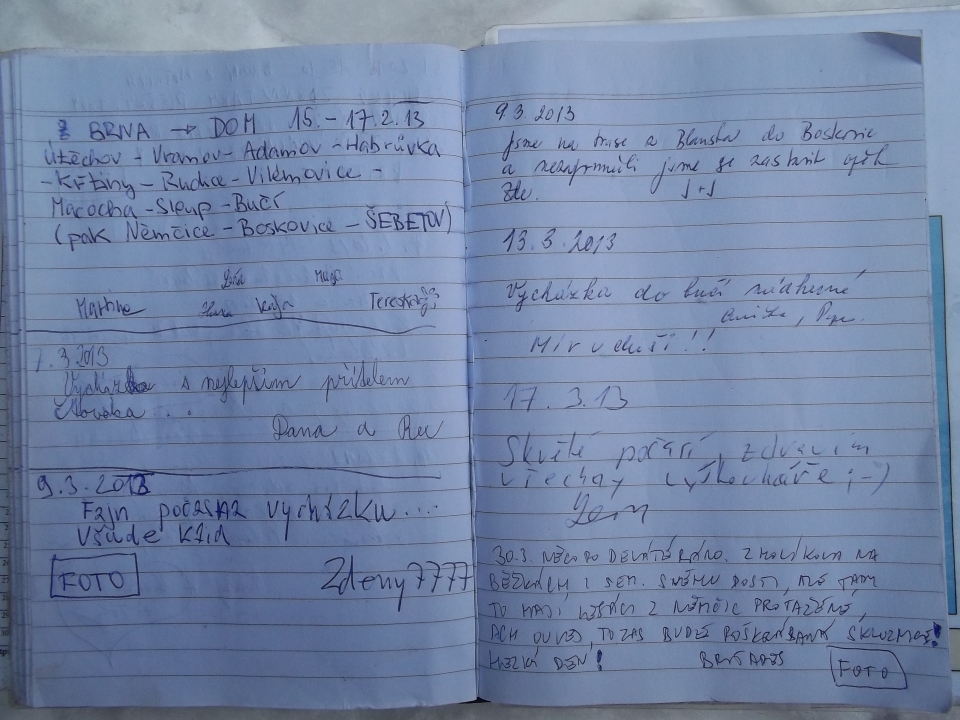 z BRNA → DOM 15. - 17.2.13
Útěchov - Vranov - Adamov - Habrůvka
- Křtiny - Rudice - Vilémovice -
Macocha - Sloup - Bučí
(pak Němčice - Boskovice - ŠEBETOV)
Martina Hana Katja
1.3.2013
Vycházka s nejlepším přítelem
člověka ..
Dana a
9.3.2013
Fajn počasí na vycházku...
všude klid
FOTO
Zdeny7777
9.3.2013
Jsme na trase z Blanska do Boskovic
a nezapomněli jsme se zastavit opět
zde. J+J
13.3.2013
Vycházka do bučí nádherné
Mír v duši!!
17.3.13
Skvělé počasí, zdravím
všechny výškocháře ;-)
30.3. NĚCO PO DEVÁTÉ RÁNO. NA
BĚŽKÁCH SEM. SNĚHU DOSTI, TADY
TO MAJÍ Z NĚMČIC PROTAŽENÉ,
TO ZAS BUDE
HEZKÝ DEN!
FOTO